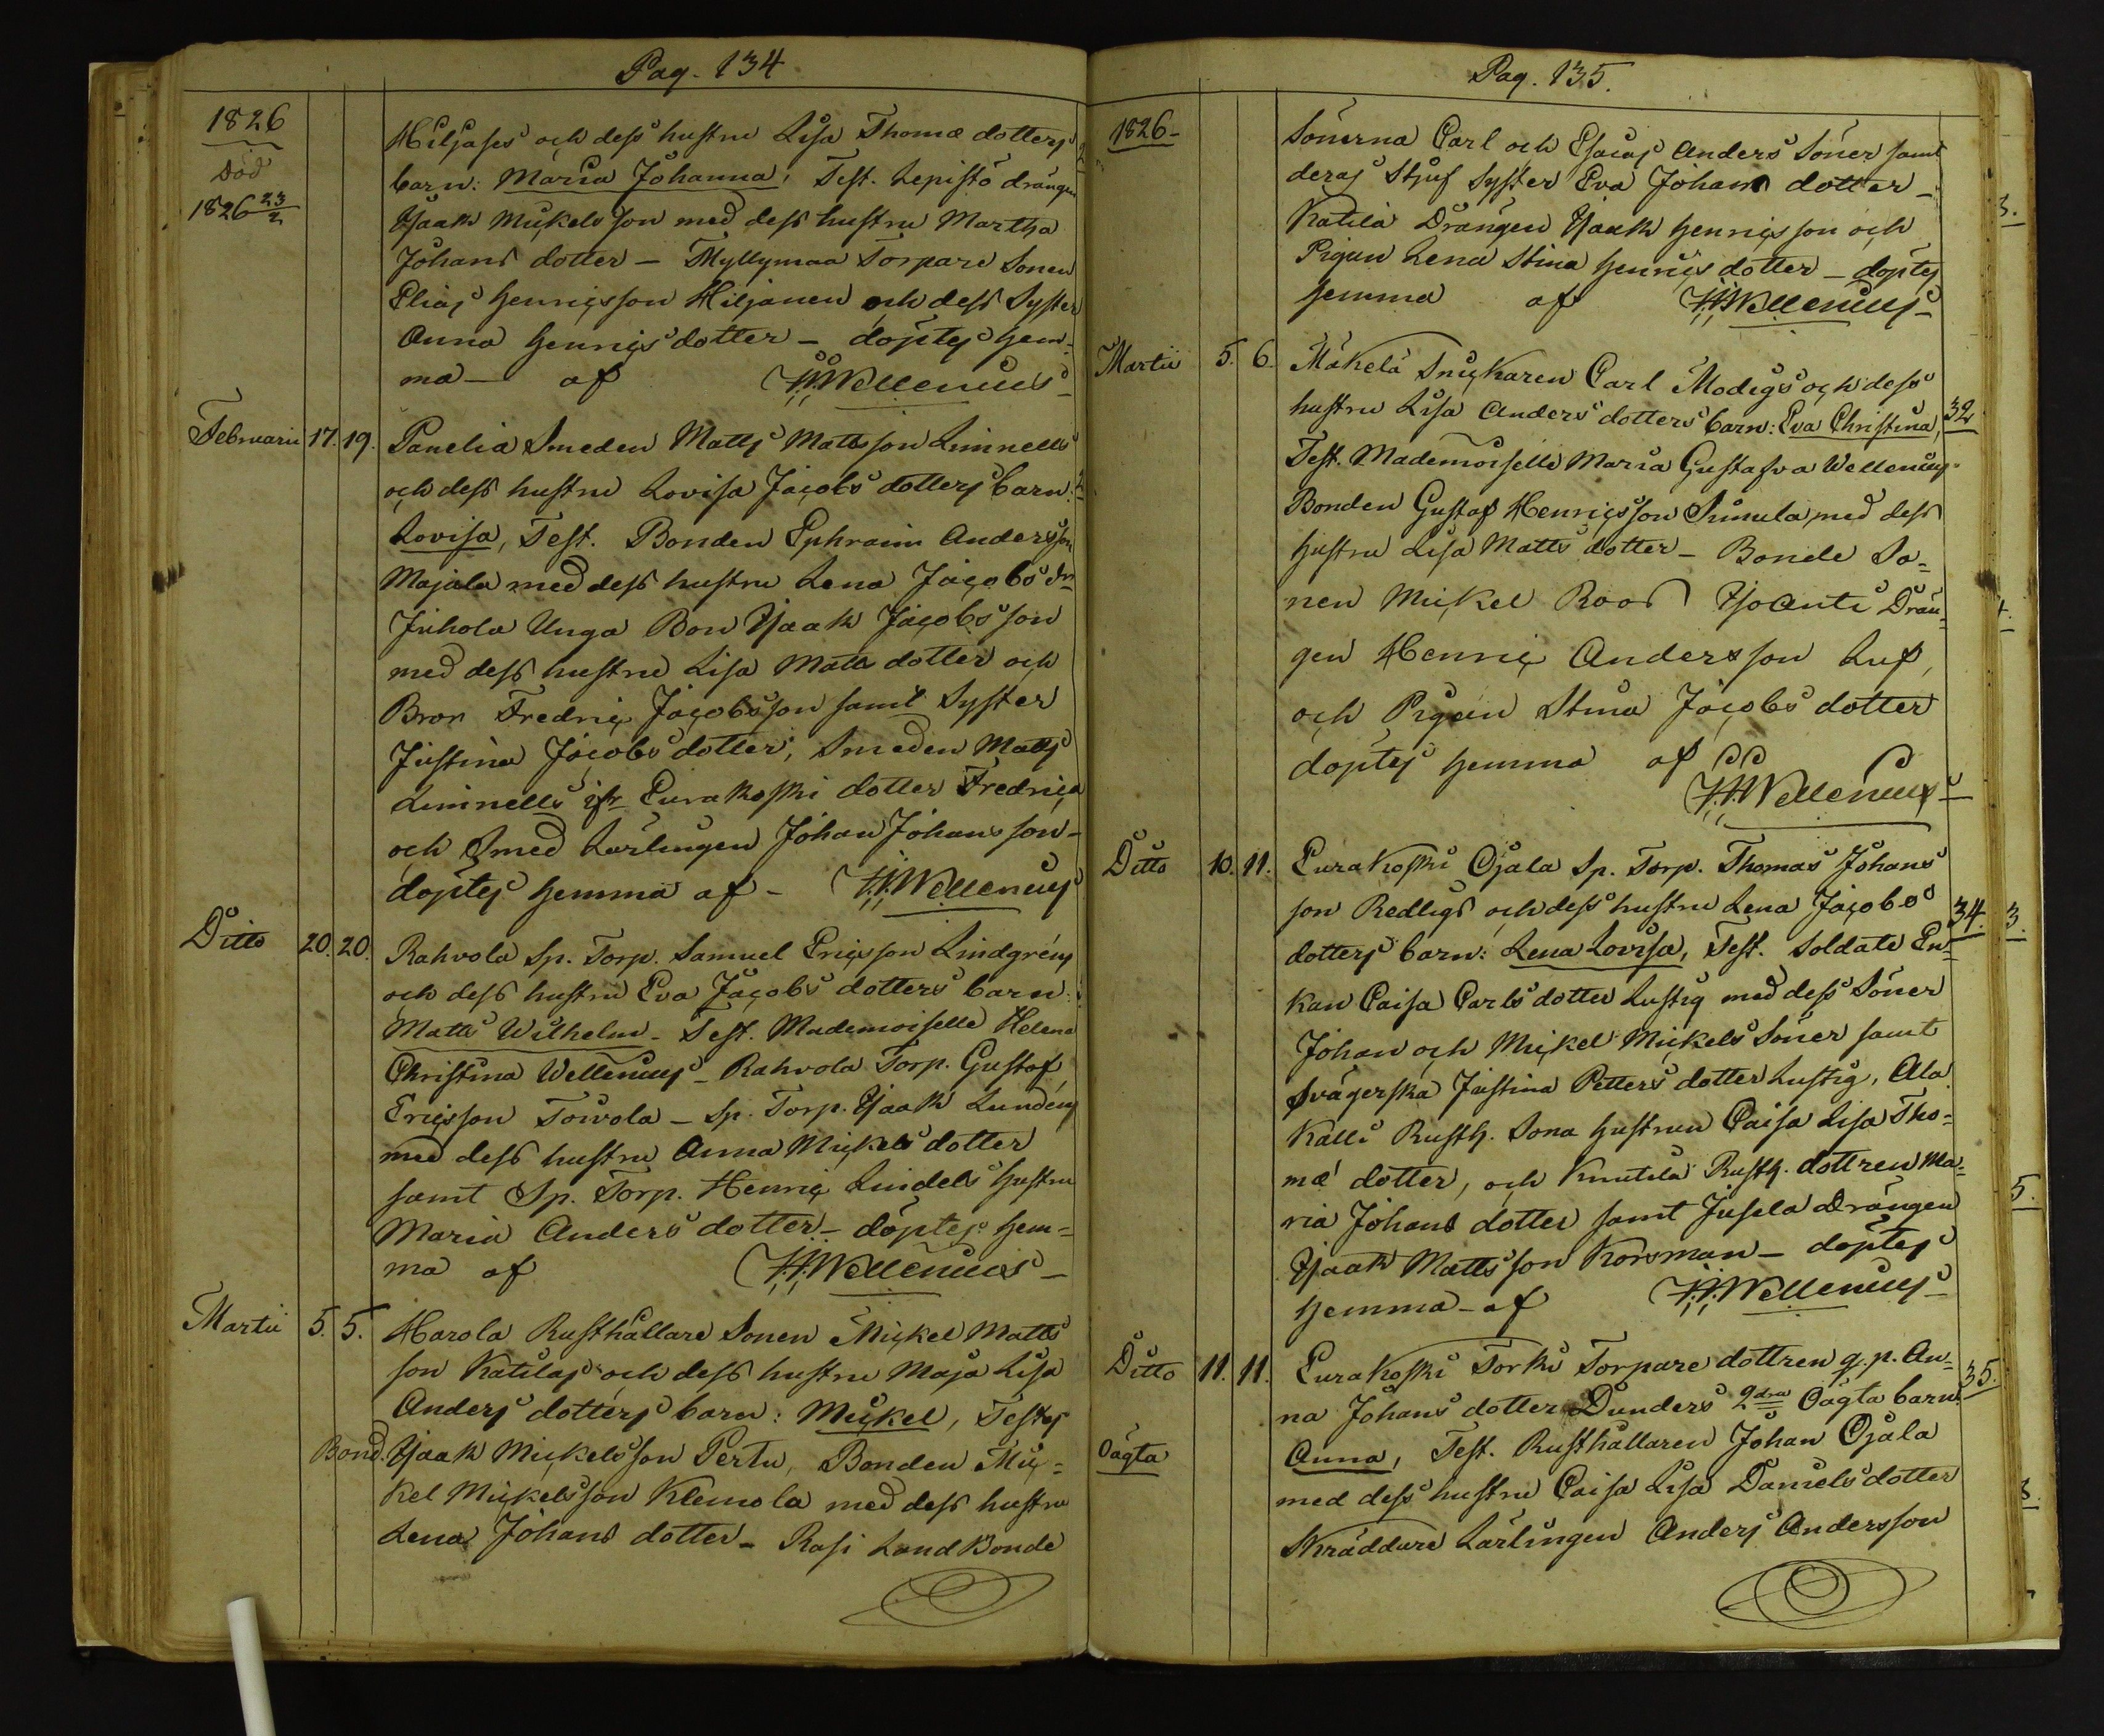 Pag. 134
1826
Död
1826 23/2
Hiljases och dess hustru Lisa Thomæ dotters
barn: Maria Johanna, Test. Lepistö drängen
Isaak Mickels son med dess hustru Martha
Johans dotter — Myllymaa Torpare Sonen
Elias Henricsson Hiljanen och dess Syster
Anna Henrics dotter — döptes hem-
ma — af H.H. Wellenius
Februarii 17. 19. Panelia Smeden Matts Mattsson Linnells
och dess hustru Lovisa Jacobs dotters barn:
Lovisa, Test. Bonden Ephraim Andersson
Majala med dess hustru Lena Jacobs dr
Juhola Unga Bon Isaak Jacobs son
med dess hustru Lisa Matts dotter och
Bror Fredric Jacobsson samt Syster
Justina Jacobs dotter, Smeden Matts
Linnells ifr Eurakoski dotter Fredrica
och Smed Lärlingen Johan Johans son —
döptes hemma af — H.H. Wellenius
Ditto 20. 20. Rahvola Sp. Torp. Samuel Ericsson Lindgréns
och dess hustru Eva Jacobs dotters barn:
Matts Wilhelm — Test. Mademoiselle Helena
Christina Wellenius — Rahvola Torp. Gustaf
Ericsson Towola — Sp. Torp. Isaak Lundéns
med dess hustru Anna Mickels dotter
samt Sp. Torp. Henric Lindels hustru
Maria Anders dotter — döptes hem=
ma af H.H. Wellenius —
Martii 5. 5. Harola Rusthållare Sonen Mickel Matts
son Katilas och dess hustru Maja Lisa
Anders dotters barn: Mickel, Testes
Bond. Isaak Mickelsson Pertu, Bonden Mic=
kel Mickelsson Klemola med dess hustru
Lena Johans dotter — Rasi Land Bonde
Pag. 135.
1826 —
Sönerna Carl och Esaias Anders Söner samt
deras Stjuf Syster Eva Johans dotter —
Katila Drängen Isaak Henricsson och
Pigan Lena Stina Henrics dotter — döptes
hemma af H.H. Wellenius —
Martii 5. 6. Mäkelä Snickaren Carl Modigs och dess
hustru Lisa Anders dotters barn: Eva Christina, 32
Test. Mademoiselle Maria Gustafva Wellenius —
Bonden Gustaf Henricsson Simula med dess
hustru Lisa Matts dotter — Bonde So-
nen Mickel Roos Isoanti Drän-
gen Henric Andersson Luf,
och Pigan Stina Jacobs dotter
döptes hemma af
H.H. Wellenius —
Ditto 10. 11. Eurakoski Ojala Sp. Torp. Thomas Johans
son Redligs och dess hustru Lena Jacobs 34.
dotters barn: Lena Lovisa, Test. Soldate En-
kan Caisa Carls dotter Lustig med dess Söner
Johan och Mickel Mickels Söner samt
Svägerska Justina Petters dotter Lustig, Ala
Källi Rusth. Sona hustrun Caisa Lisa Tho-
mæ dotter, och Knutila Rusth. dottren Ma-
ria Johans dotter samt Jusela Drängen
Isaak Mattsson Korsman — döptes
hemma — af H.H. Wellenius —
Ditto 11. 11. Eurakoski Torki Torpare dottren q. p. An- 35.
na Johans dotter Dunders 2dra Oägta barn:
Oägta
Anna, Test. Rusthållaren Johan Ojala
med dess hustru Caisa Lisa Daniels dotter
Skräddare Lärlingen Anders Andersson
3.
3.
5.
8.